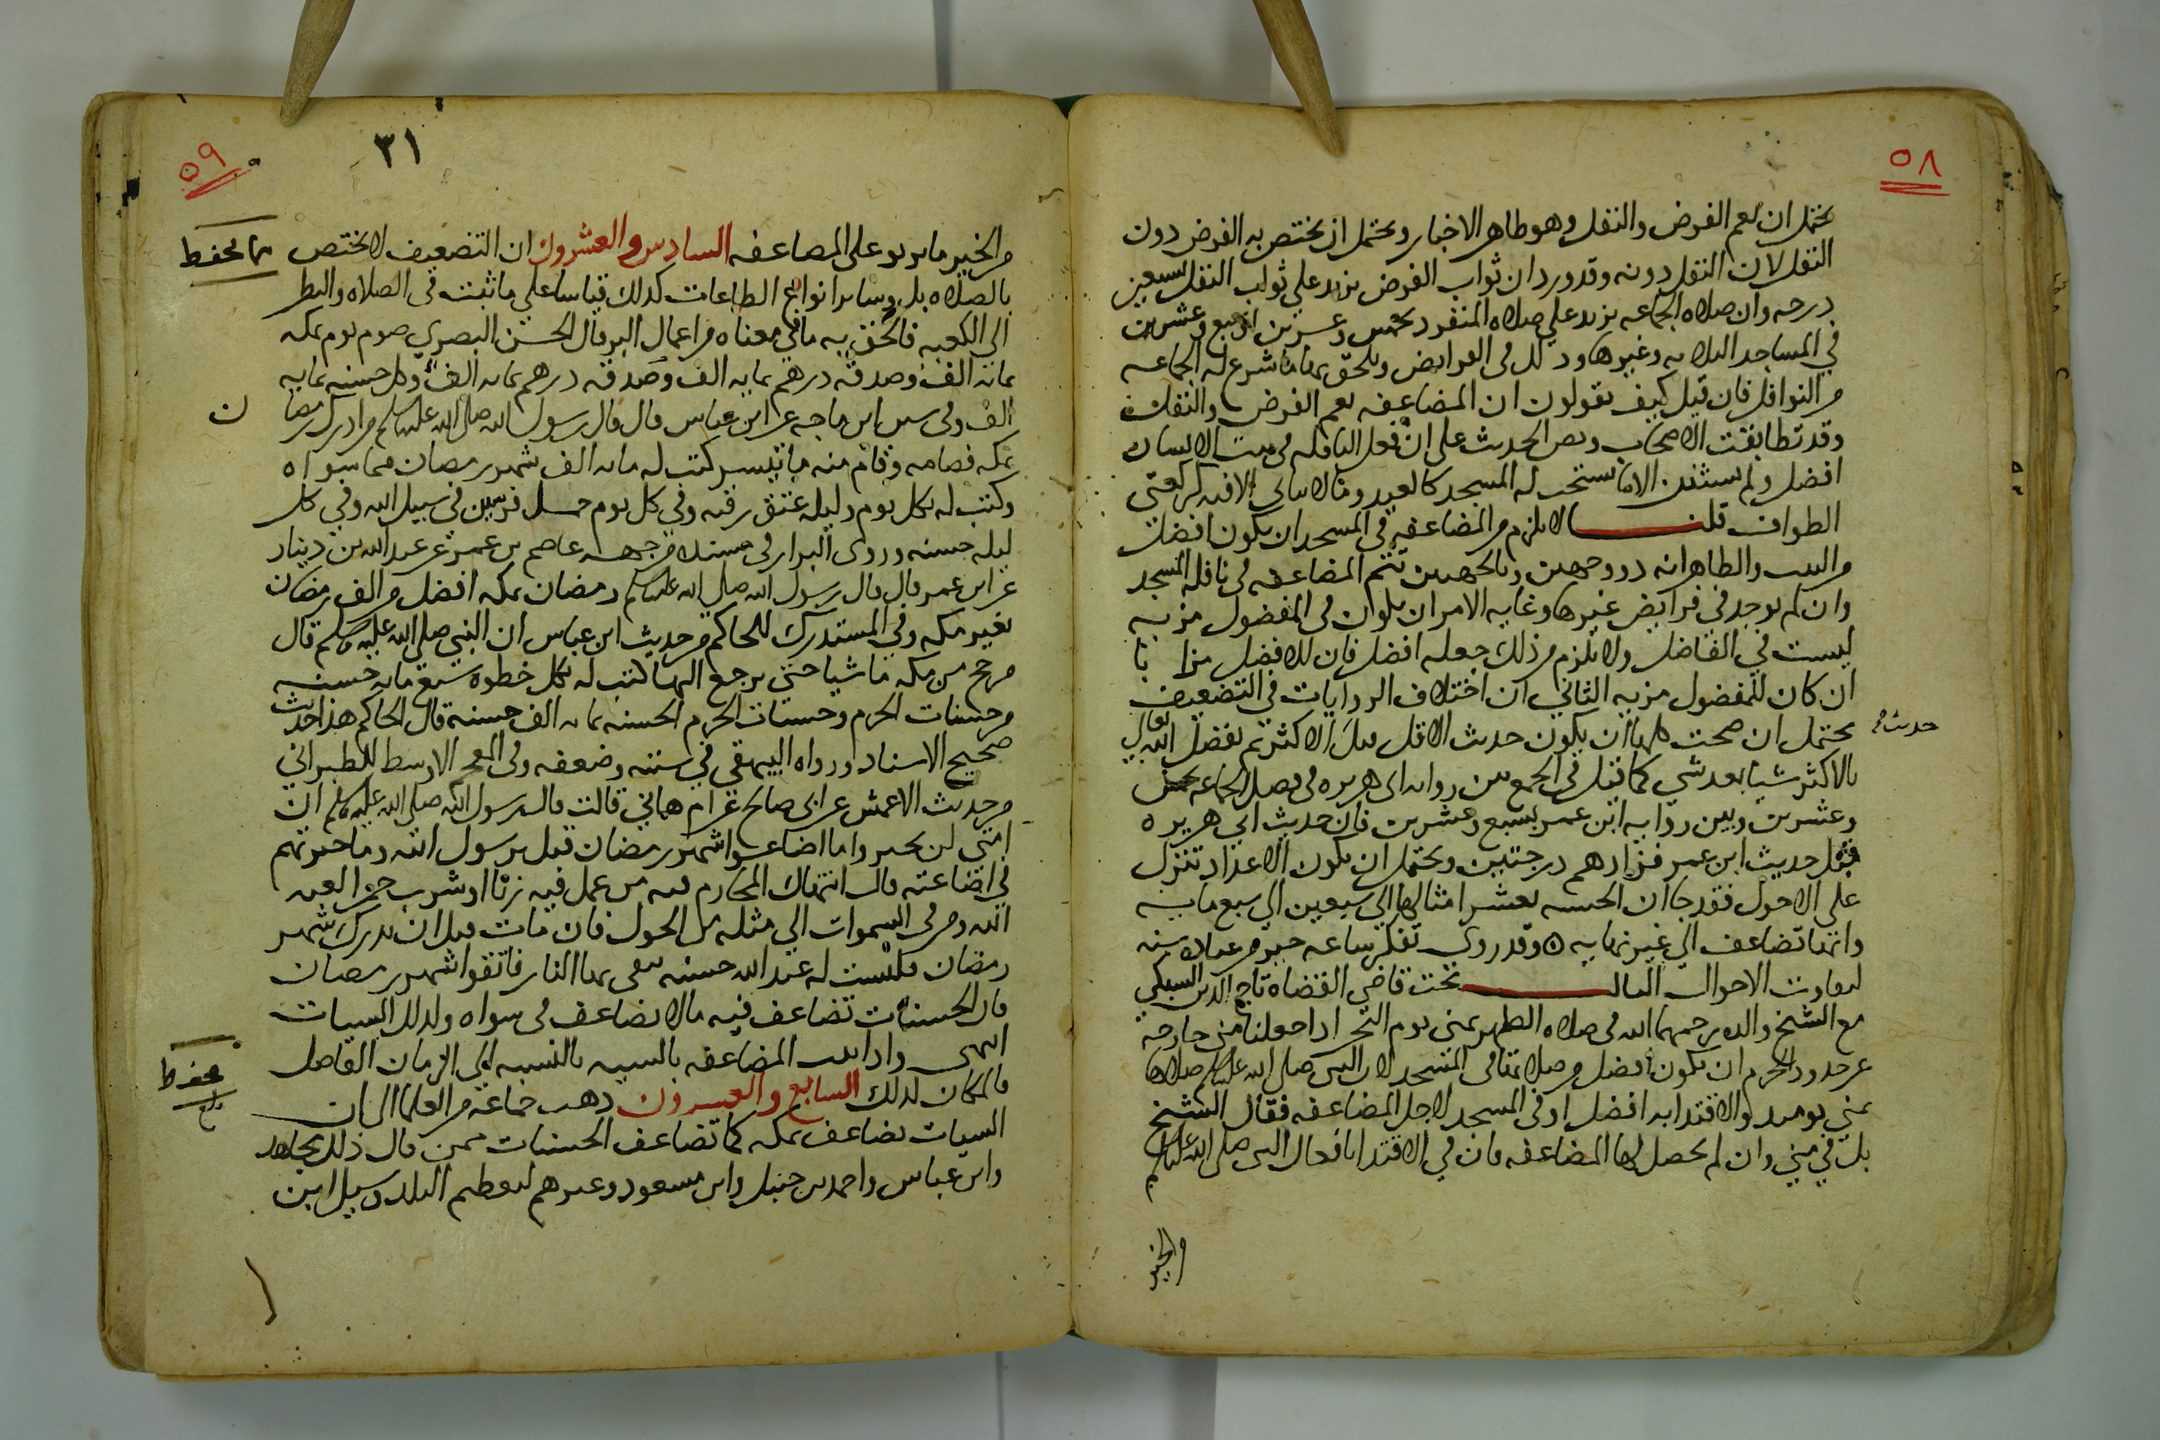 ٥٨
يحتمل ان يعم الفرض والنفل وهو ظاهر الاخبار ويحتمل ان يختص به الفرض دون
النفل لان النفل دونه وقد ورد ان ثواب الفرض يزيد علي ثواب النفل بسبعين
درجه وان صلاه الجماعه يزيد علي صلاه المنفرد بخمس وعشرين او سبع وعشرين
في المساجد الثلاثه وغيرها وذلك في الفرايض ويلحق بها ما شرع له الجماعه
من النوافل فان قيل كيف تقولون ان المضاعفه تعم الفرض والنفل
وقد تطابقت الاصحاب ونص الحديث علي ان فعل النافله في بيت الانسان
افضل ولم يستثنى الا ما يستحب له المسجد كالعيد وما لا يتاتي الا فيه كركعتي
الطواف قلنا لا يلزم من المضاعفه في المسجد ان يكون افضل
من البيت والظاهر انه ذو وجهين وبالجهتين تتم المضاعفه في نافله المسجد
وان لم توجد في فرايض غيرها وغايه الامر ان يكون في المفضول مزيه
ليست في الفاضل ولا يلزم من ذلك جعله افضل فان للافضل مزايا
ان كان للمفضول مزيه الثاني ان اختلاف الروايات في التضعيف
يحتمل ان صحت كلها ان يكون حديث الاقل قبل الاكثر ثم تفضل الله تعالي
حديث
بالاكثر شيا بعد شي كما قيل في الجمع بين روايه ابي هريره في فضل الجماعه بخمس
وعشرين وبين روايه ابن عمر بسبع وعشرين فان حديث ابي هريره
قبل حديث ابن عمر فزادهم درجتين ويحتمل ان يكون الاعداد تنزل
علي الاحوال فقد جا ان الحسنه بعشر امثالها الي سبعين الي سبع مايه
وانها تضاعف الي غير نهايه ٥ وقد روي تفكر ساعه خير من عباده سنه
لتفاوت الاحوال الثالث بحث قاضي القضاه تاج الدين السبكي
مع الشيخ والده رحمهما الله في صلاه الظهر بمنى يوم النحر اذا جعلنا منى خارجه
عن حدود الحرم ان يكون افضل من صلاتها في المسجد لان النبي صلى الله عليه وسلم صلاها
بمني يوميذ والاقتدا به افضل او في المسجد لاجل المضاعفه فقال الشيخ
بل في مني وان لم يحصل لها المضاعفه فان في الاقتدا بافعال النبي صلى الله عليه وسلم
من الخير
٥٩
٣١
من الخير ما يربو علي المضاعفه السادس والعشرون ان التضعيف لا يختص
مما يحفظ
بالصلاه بل وساير انواع الطاعات كذلك قياسا علي ما ثبت في الصلاه والنظر
الي الكعبه فالحق به ما في معناه من اعمال البر قال الحسن البصري صوم يوم بمكه
بمايه الف وصدقه درهم بمايه الف وصدقه درهم بمايه الف وكل حسنه بمايه
الف وفي سنن ابن ماجه عن ابن عباس قال قال رسول الله صلى الله عليه وسلم من ادرك رمضا
ن
بمكه فصامه وقام منه ما تيسر كتب له مايه الف شهر رمضان فيما سواه
وكتب له بكل يوم وليله عتق رقبه وفي كل يوم حمل فرسين في سبيل الله وفي كل
ليله حسنه وروي البزار في مسنده من جهه عاصم بن عمر عن عبد الله بن دينار
عن ابن عمر قال قال رسول الله صلى الله عليه وسلم رمضان بمكه افضل من الف رمضان
بغير مكه وفي المستدرك للحاكم من حديث ابن عباس ان النبي صلى الله عليه وسلم قال
من حج من مكه ماشيا حتي يرجع اليها كتب له بكل خطوه سبع مايه حسنه
من حسنات الحرم وحسنات الحرم الحسنه بمايه الف حسنة قال الحاكم هذا حديث
صحيح الاسناد ورواه البيهقي في سننه وضعفه وفي المعجم الاوسط للطبراني
من حديث الاعمش عن ابي صالح عن ام هاني قالت قال رسول الله صلى الله عليه وسلم ان
امتي لن يخيروا ما اضاعوا شهر رمضان قيل يرسول الله وما خيرتهم
في اضاعته قال انتهاك المحارم فيه من عمل فيه زنا او شرب خمر العنه
الله ومن في السموات الي مثله من الحول فان مات قبل ان يدرك شهر
رمضان فليست له عند الله حسنه يتقي بها النار فاتقوا شهر رمضان
فان الحسنات تضاعف فيه ما لا يضاعف في سواه وكذلك السيات
انتهى واذا ثبت المضاعفه بالسيه بالنسبه الي الزمان الفاضل
يحفظ
فالمكان كذلك السابع والعشرون ذهب جماعة من العلما الي ان
السيات تضاعف بمكه كما تضاعف الحسنات ممن قال ذلك مجاهد
وابن عباس واحمد بن حنبل وابن مسعود وغيرهم لتعظيم البلد وسيل ابن